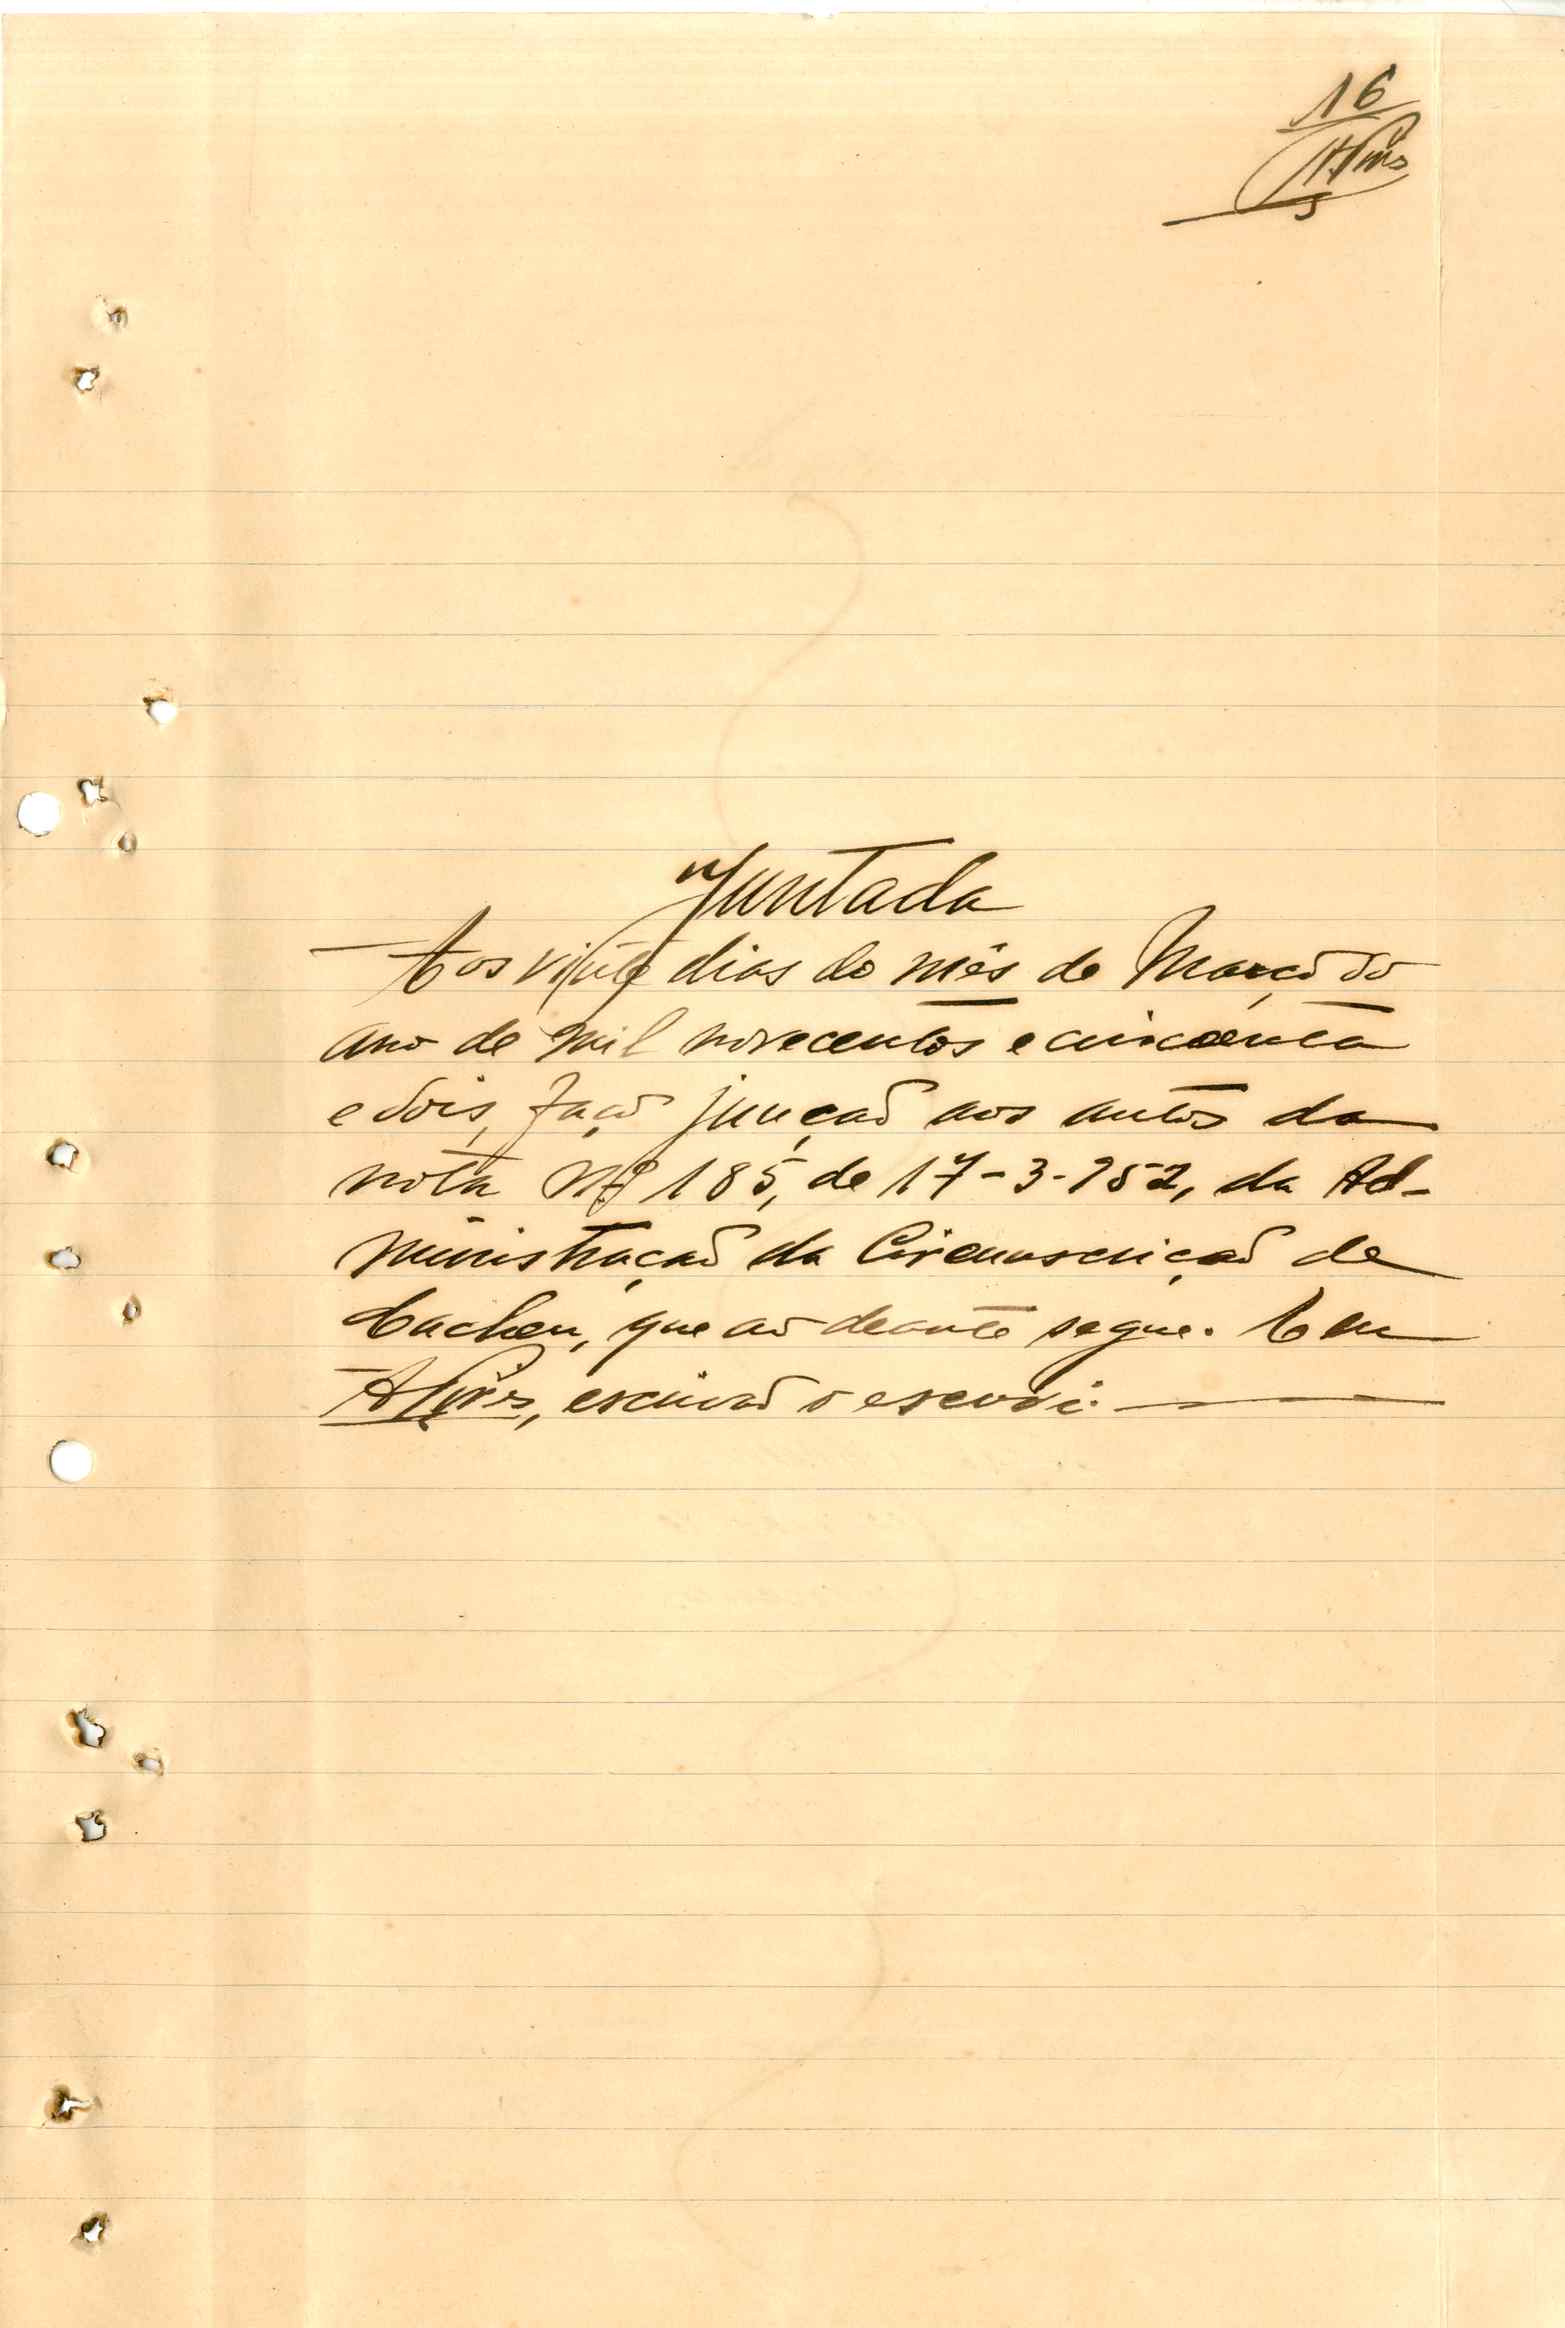 16
APires
Juntada
Aos vinte dias do mês de Março do
ano de mil novecentos e cincoenta
e dois, faço junção aos autos da
nota Nº 185, de 17-3-952, da Ad-
ministração da Circunscrição de
Cacheu, que ao deante segue. E eu
APires, escrivão o escrevi.